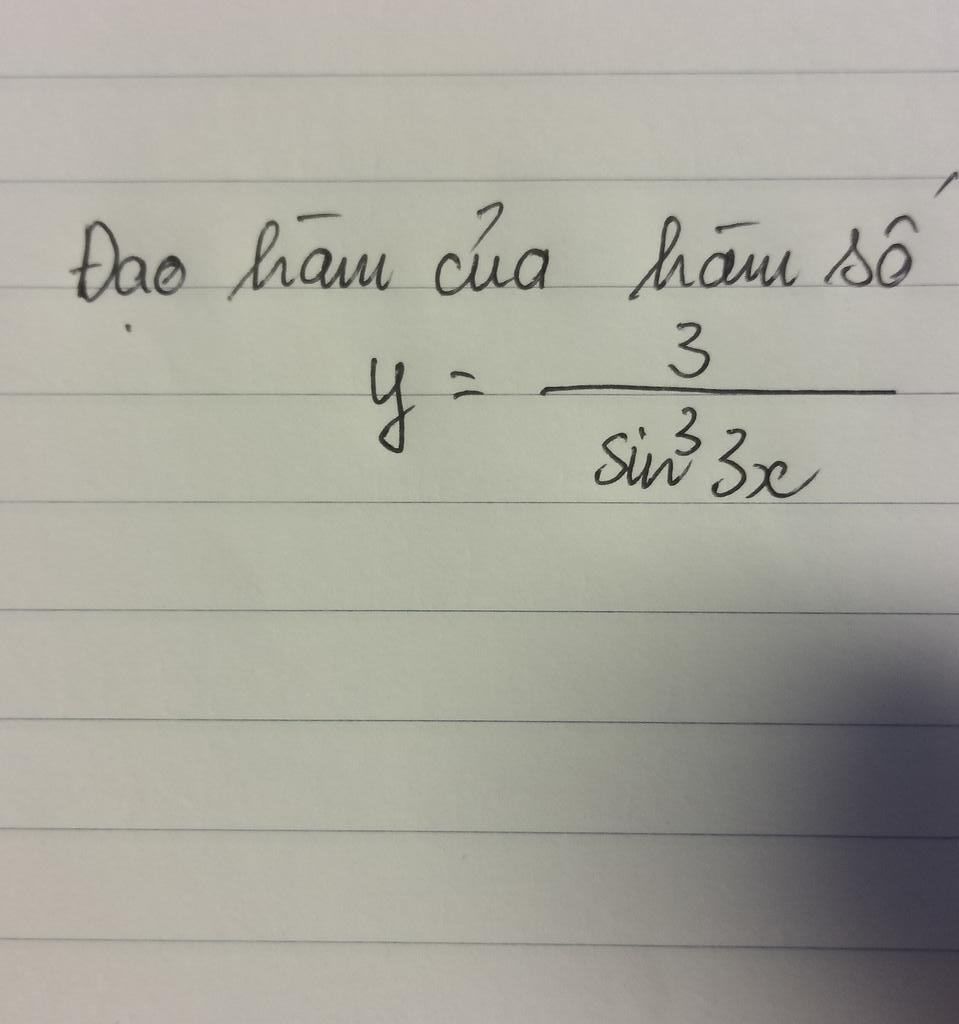 Đạo hàm của hàm số
y = \frac{3}{\sin^3 3x}